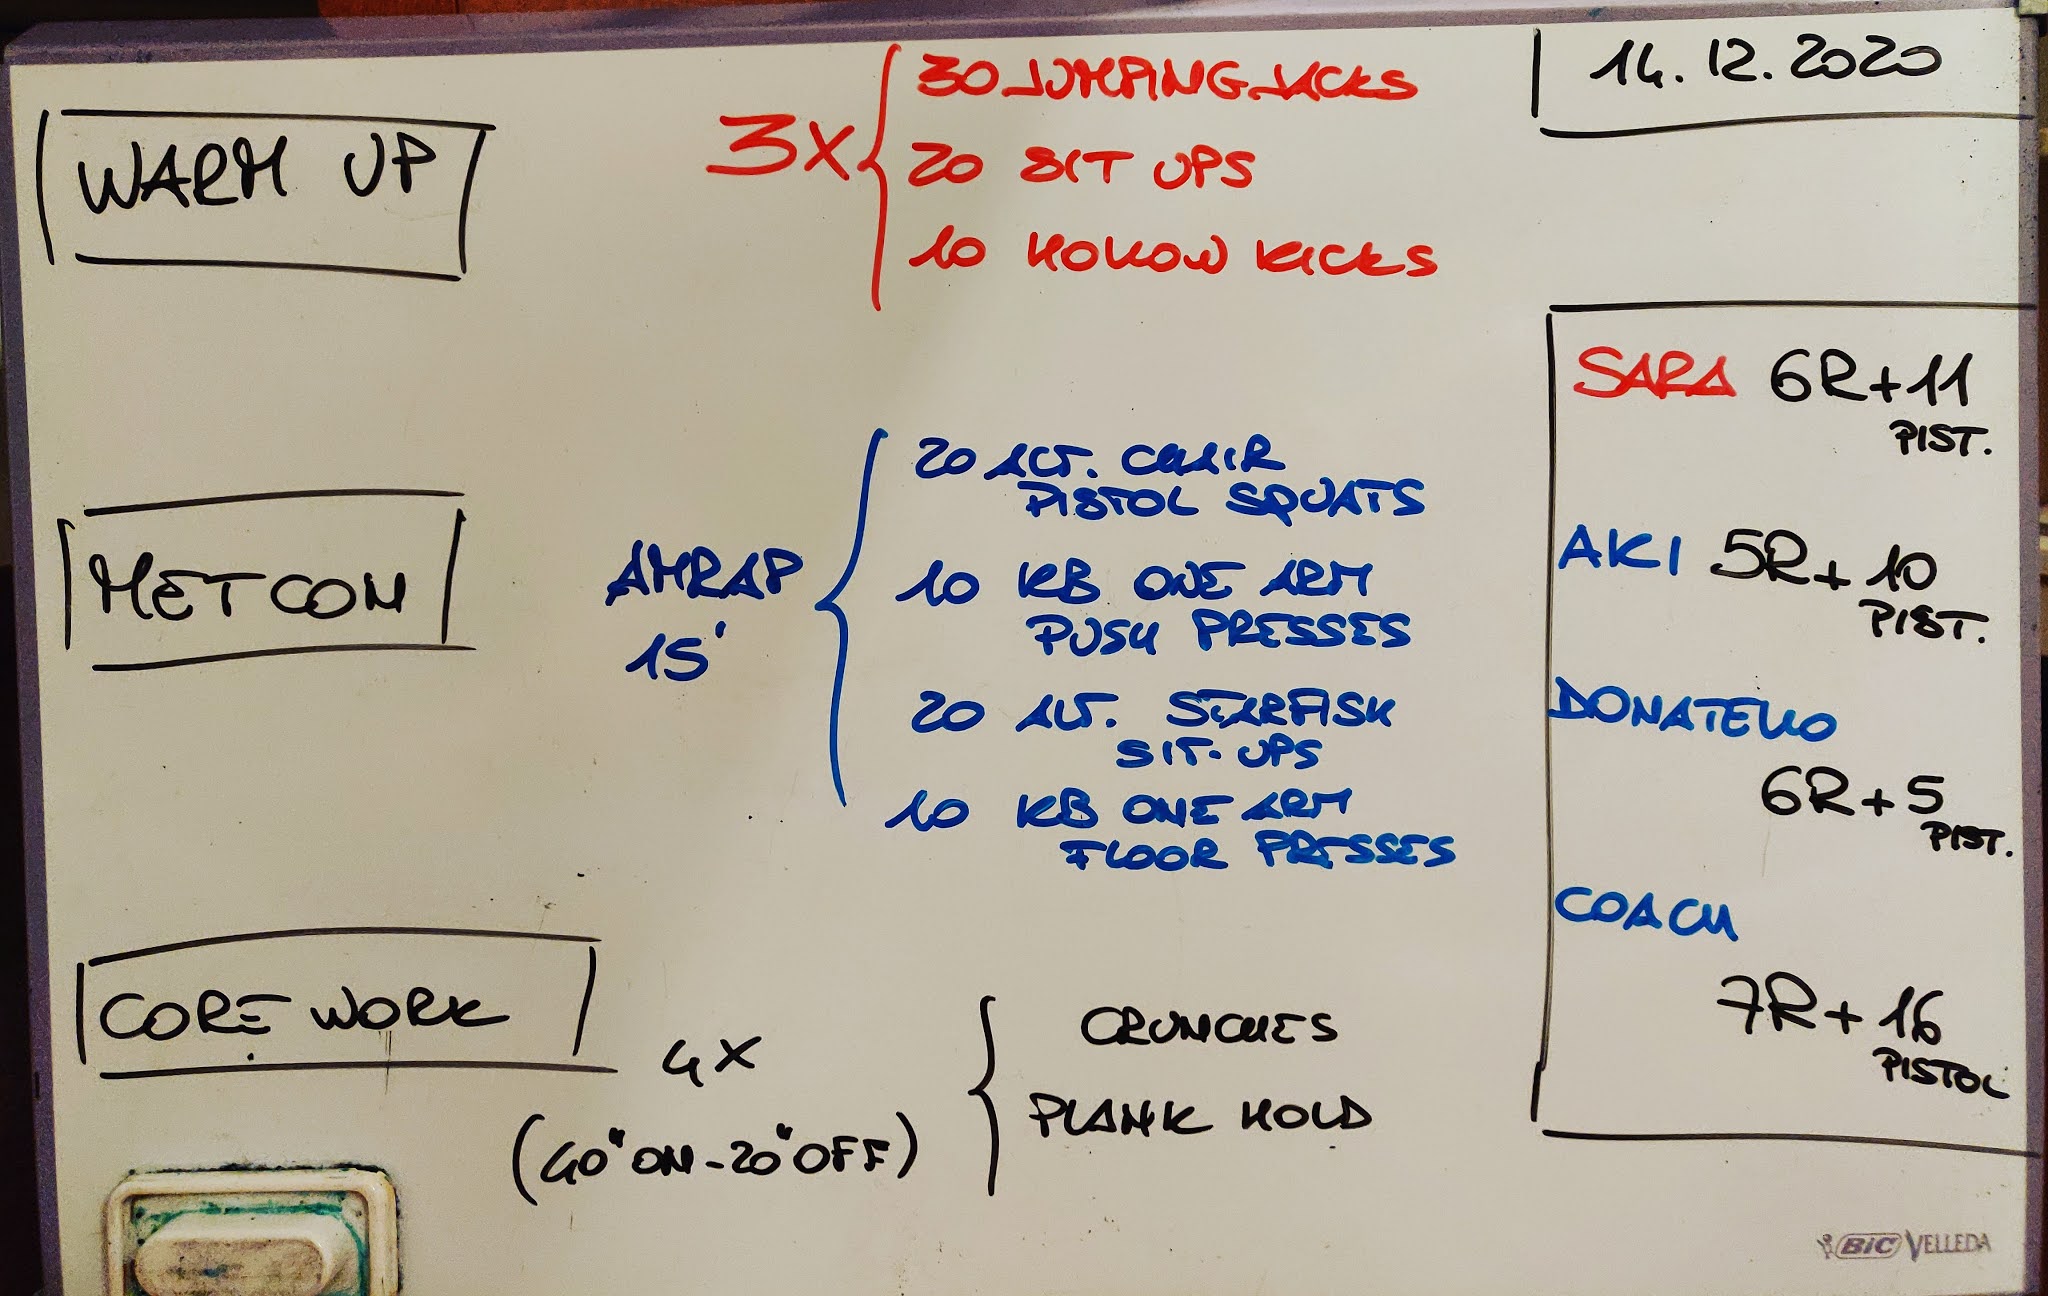 14.12.2020
WARM UP
3X
30 JUMPING JACKS
20 SIT UPS
10 HOLLOW KICKS
METCON
AMRAP
15'
20 ALT. CHAIR
PISTOL SQUATS
10 KB ONE ARM
PUSH PRESSES
20 ALT. STARFISH
SIT-UPS
10 KB ONE ARM
FLOOR PRESSES
CORE WORK
4X
(40" ON - 20" OFF)
CRUNCHES
PLANK HOLD
SARA 6R+11
PIST.
AKI 5R+10
PIST.
DONATELLO
6R+5
PIST.
COACH
7R+16
PISTOL
BIC VELLEDA